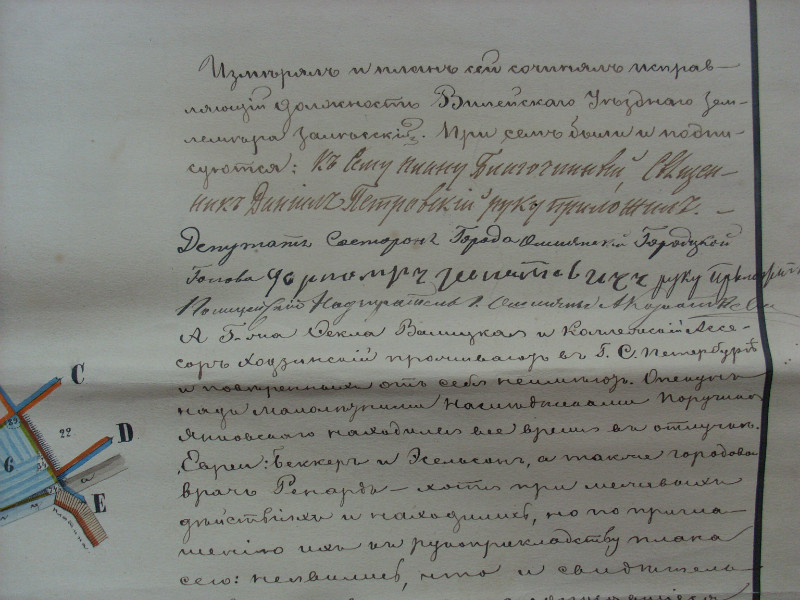 Измѣрялъ и планъ сей сочинялъ исправ-
ляющій должность Вилейскаго Уѣзднаго Зем-
лемѣра Залѣсскій. При семъ были и подпи-
суются: Къ сему плану Благочинный Священ-
никъ Даніилъ Петровскій руку приложилъ. –
Депутатъ Состороны Города Ошмянскій Городской
Голова руку приложилъ
Полицейскій Надзиратель г. Ошмяны А
А Г-жа Фекла Валицкая и Коллежскій Ассе-
соръ Ходзинскій проживаютъ въ Г. С. Петербургѣ
и повѣренныхъ отъ себя неимѣютъ. Опекунъ
надъ малолѣтними наслѣдниками Поручика
Янковскаго находился все время въ отлучкѣ.
Евреи: Беккеръ и а также городовой
врачъ – хотя при межевыхъ
дѣйствіяхъ и находились, но по пригла-
шенію ихъ къ рукоприкладству плана
сего: неявились, что и свидѣтель-
C
22
D
G
E